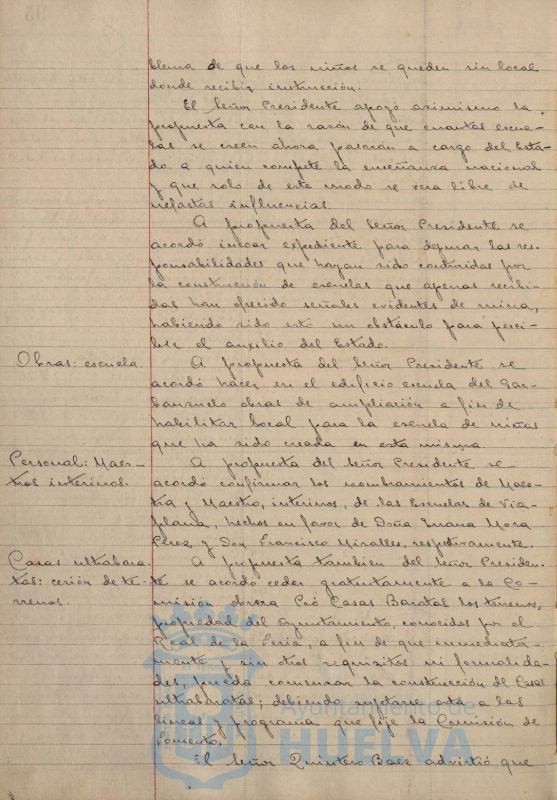 blema de que los niños se queden sin local
donde recibir instrucción.
El Señor Presidente apoyó asimismo la
propuesta con la razón de que cuantas escue-
las se creen ahora pasarán a cargo del Esta-
do a quien compete la enseñanza nacional
y que solo de este modo se vera libre de
nefastas influencias.
A propuesta del Señor Presidente se
acordó incoar expediente para depurar las res-
ponsabilidades que hayan sido contraidas por
la construcción de escuelas que apenas recibi-
das han ofrecido señales evidentes de ruina,
habiendo sido esto un obstáculo para perci-
bir el auxilio del Estado.
Obras: escuela.
A propuesta del Señor Presidente se
acordó hacer en el edificio escuela del Gar-
banzuelo obras de ampliación a fin de
habilitar local para la escuela de niñas
que ha sido creada en esta misma.
Personal: Maes-
tros interinos.
A propuesta del Señor Presidente se
acordó confirmar los nombramientos de Maes-
tra y Maestro, interinos, de las Escuelas de Via-
plana, hechos en favor de Doña Mora
Perez y Don Francisco Miralles, respectivamente.
Casas ultrabara-
tas: cesión de te-
rrenos.
A propuesta tambien del Señor Presiden-
te se acordó ceder gratuitamente a la Co-
misión Pró Casas Baratas los terrenos,
propiedad del Ayuntamiento, conocidos por el
Real de la Feria, a fin de que inmediata-
mente y sin otros requisitos ni formalida-
des, pueda comenzar la construcción de Casas
ultrabaratas; debiendo sujetarse esta a las
lineas y programa que fije la Comisión de
Fomento.
El Señor Quintero Baez advirtió que
Ayuntamiento de
HUELVA